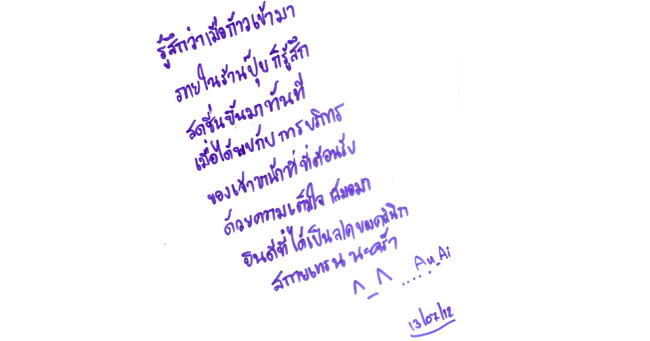 รู้สึกว่าเมื่อก้าวเข้ามา
ภายในร้านปุ๊ป ก็รู้สึก
สดชื่นขึ้นมาทันที
เมื่อได้พบกับ การบริการ
ของเจ้าหน้าที่ ที่ต้อนรับ
ด้วยความเต็มใจ เสมอมา
ยินดีที่ได้เป็นลูกค้า
นะคร้า
^_^ ..... Au_Ai
13/07/12